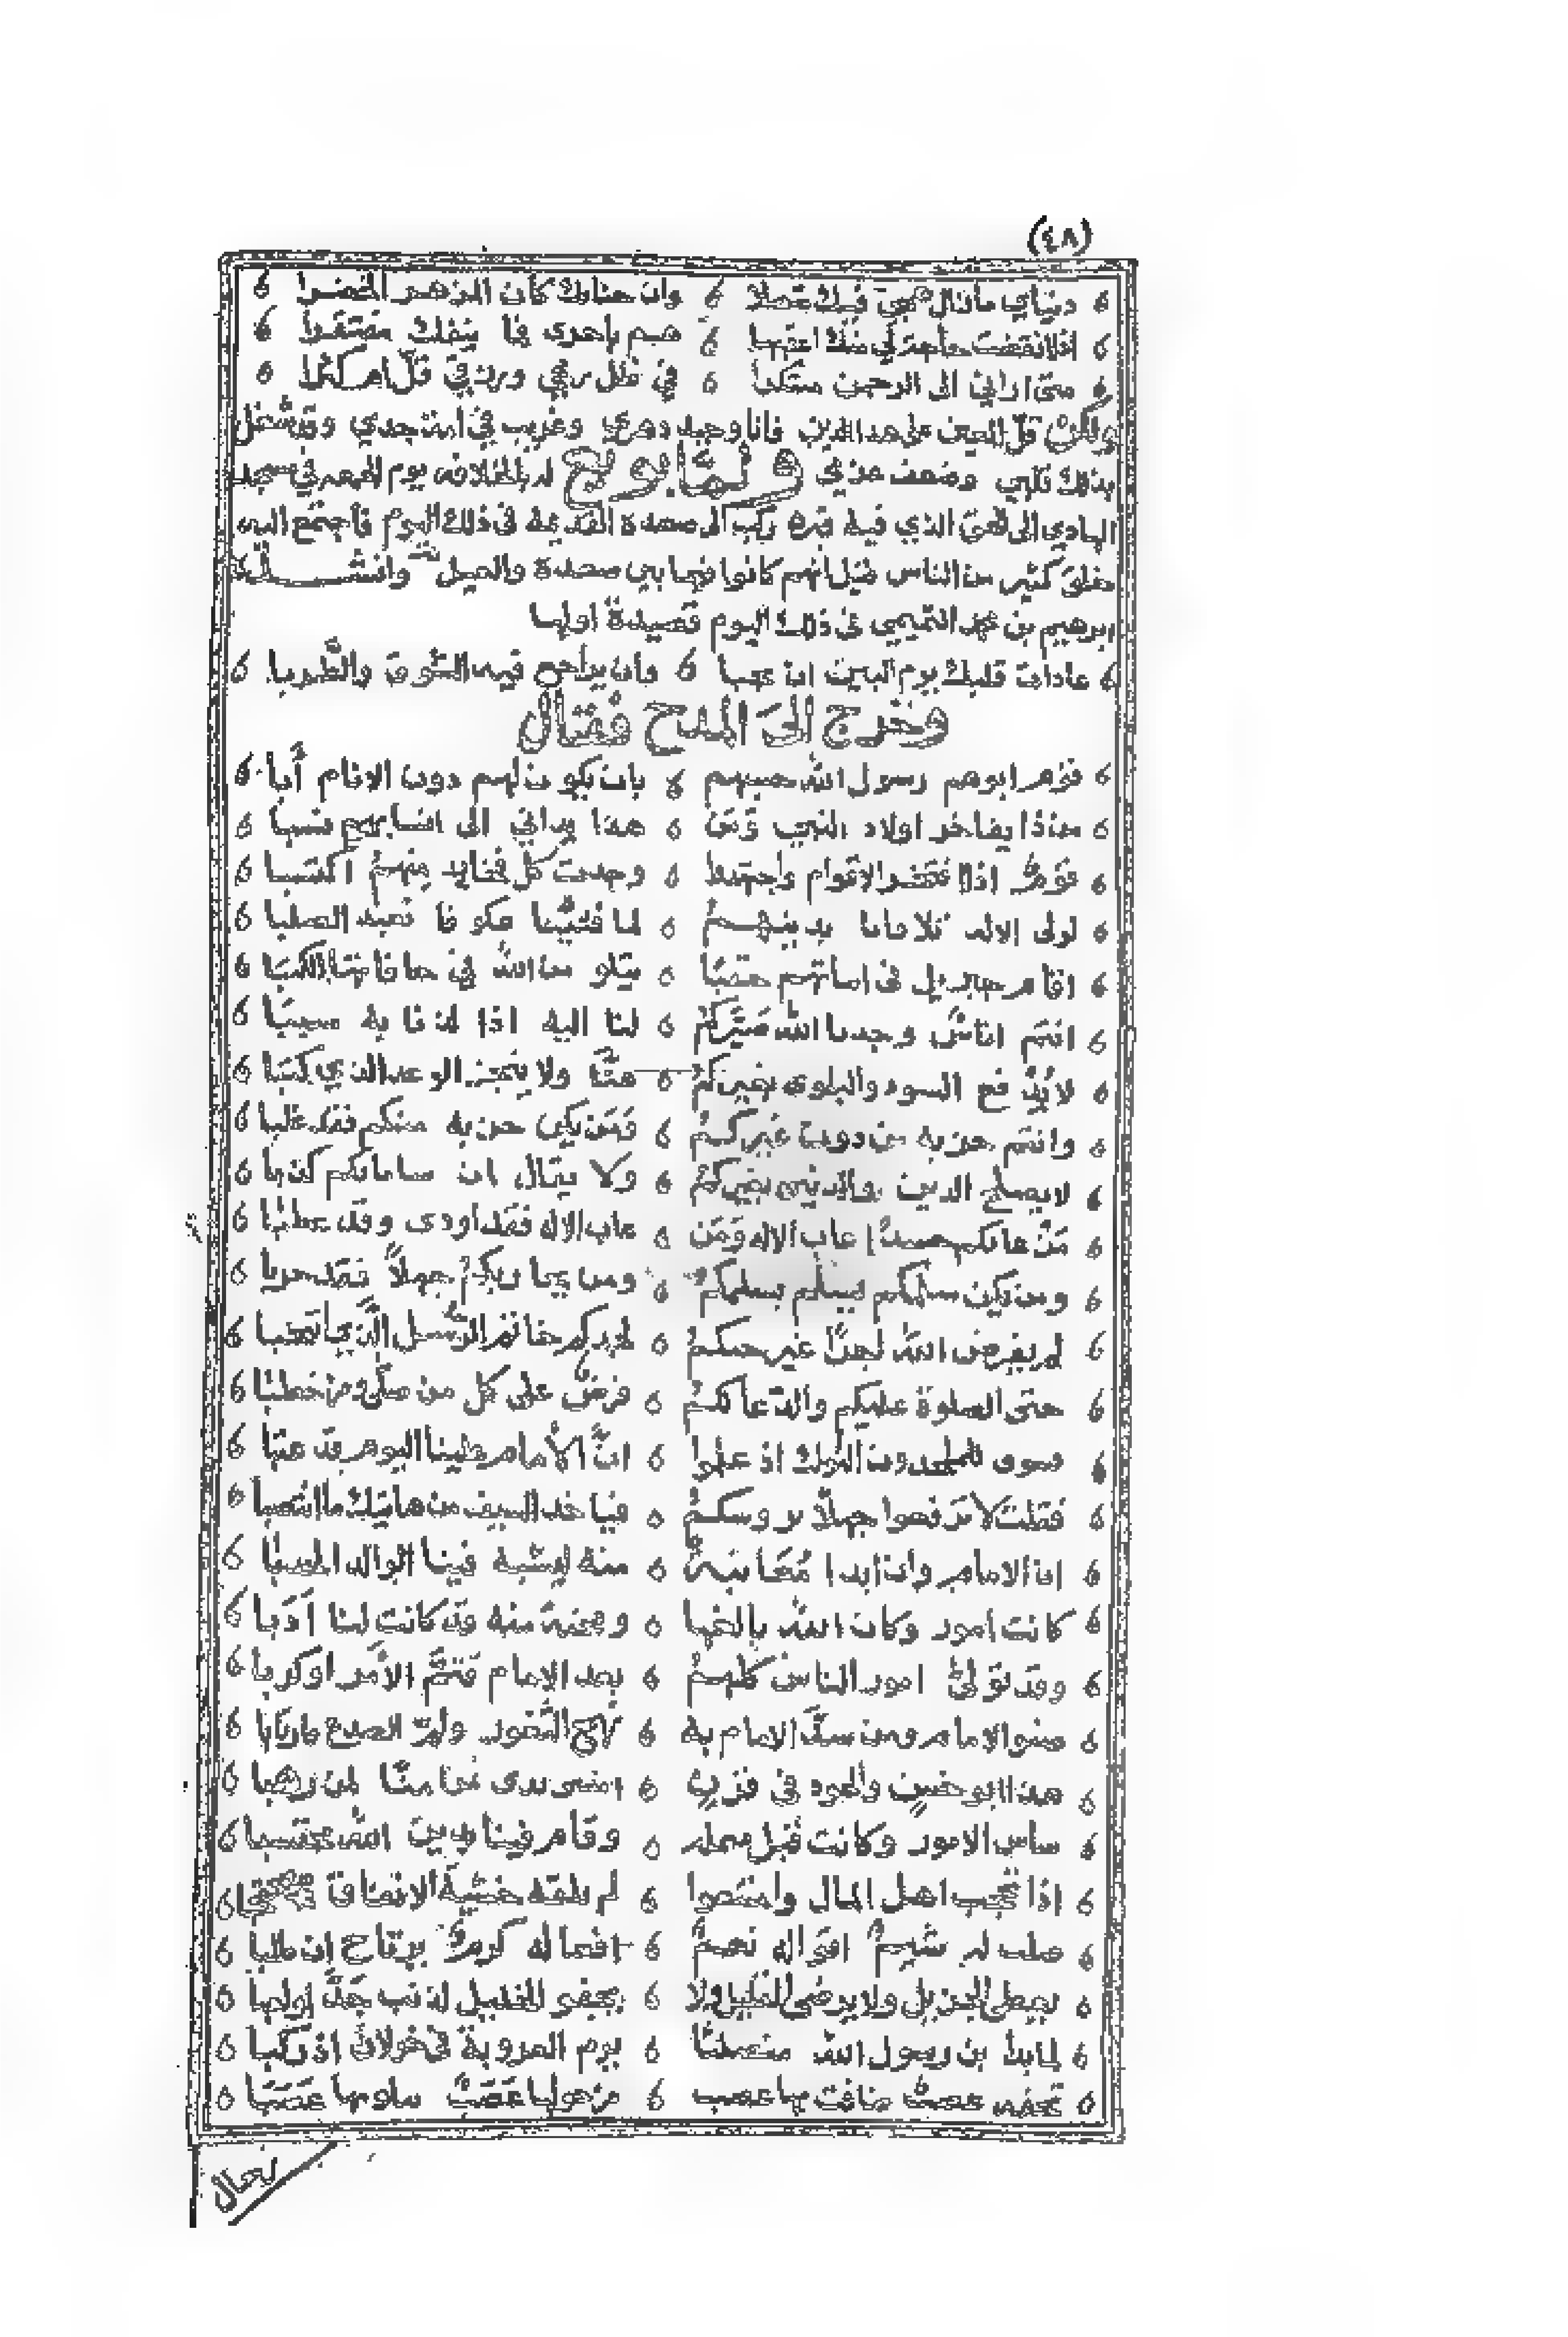 (٤٨)
دنياي مازال همي فيك متصلا وان جنابك كان المزهر الخضرا
اذا انقضت حاجة لي منك اعقبها هم باخرى فما ينفك مفتقرا
متى اراني الى الرحمن مبتكرا في ظل رمحي ورزقي قل ام كثرا
ولكن قل المعين على هذا الدين فانا وحيد دهري وغريب في امة جدي وقد شغل
بذلك قلبي وضعف عزمي ولما بويع له بالخلافة يوم الجمعة في مسجد
الهادي الى الحق الذي فيه قبره ركب الى صعدة القديمة في ذلك اليوم فاجتمع اليه
خلق كثير من الناس قيل انهم كانوا فيما بين صعدة والغيل وانشد
ابرهيم بن محمد التميمي في ذلك اليوم قصيدة اولها
عادات قلبك يوم البين ان يجبا وان يراجع فيه الشوق والطربا
وخرج الى المدح فقال
قوم ابوهم رسول الله حسبهم بان يكون لهم دون الانام أبا
من ذا يفاخر اولاد النبي ومن هذا يداني الى انسابهم نسبا
قوم اذا افتخر الاقوام واجتهدوا وجدت كل فخار منهم اكتسبا
لولى الاله تلافانا بدينهم لما فتئنا عكوفا نعبد الصلبا
اقام جبريل في ابياتهم حقبا يتلو من الله في حافاتها الكتبا
انتم اناس وجدنا الله صيركم لنا اليه اذا لذنا به سببا
لا يدفع السوء والبلوى بغيركم عنا ولا ينجز الوعد الذي كتبا
وانتم حزبه من دون غيركم ومن يكن حزبه منكم فقد غلبا
لا يصلح الدين والدنيا بغيركم ولا يقال ان ساماكم كذبا
من عابكم حسدا عاب الاله ومن عاب الاله فقد اودى وقد عطبا
ومن يكن سلمكم يسلم بسلمكم ومن يحاربكم جهلا فقد حربا
لم يفرض الله اجرا غير حبكم لجدكم خاتم الرسل الذي انتجبا
حتى الصلوة عليكم والدعا لكم فرض على كل من صلى ومن خطبا
سوى الملحدون النوك اذ علموا ان الامام علينا اليوم قد عتبا
فقلت لا ترفعوا جهلا بروسكم فيا خذ السيف من هاتيك ما انتصبا
ان الامام وان ابدا معاتبة منه ليشبه فينا الوالد الحدبا
كانت امور وكان الله بالغها ومحنة منه قد كانت لنا ادبا
وقد تولى امور الناس كلهم بعد الامام فتم الامر او كربا
صنو الامام ومن سد الامام به الثغور ولم الصدع فارتابا
هذا ابو حسن والجود في قرن امسى ندى منا لمن رهبا
ساس الامور وكانت قبل مهملة وقام فينا بدين الله محتسبا
اذا تحجب اهل المال وامتنعوا لم تلقه خشية الانفاق محتجبا
صلب له شيم اقواله نعم افعاله كرم يرتاح ان طلبا
يعطي الجزيل ولا يرضى القليل ولا يجفو الخليل لذنب جد او لعبا
لما بدا بن رسول الله منصلتا يوم العروبة في خولان اذ ركبا
تحفه عصب ضاقت بها عصب من حولها عصب ساومها عصبا
رجال